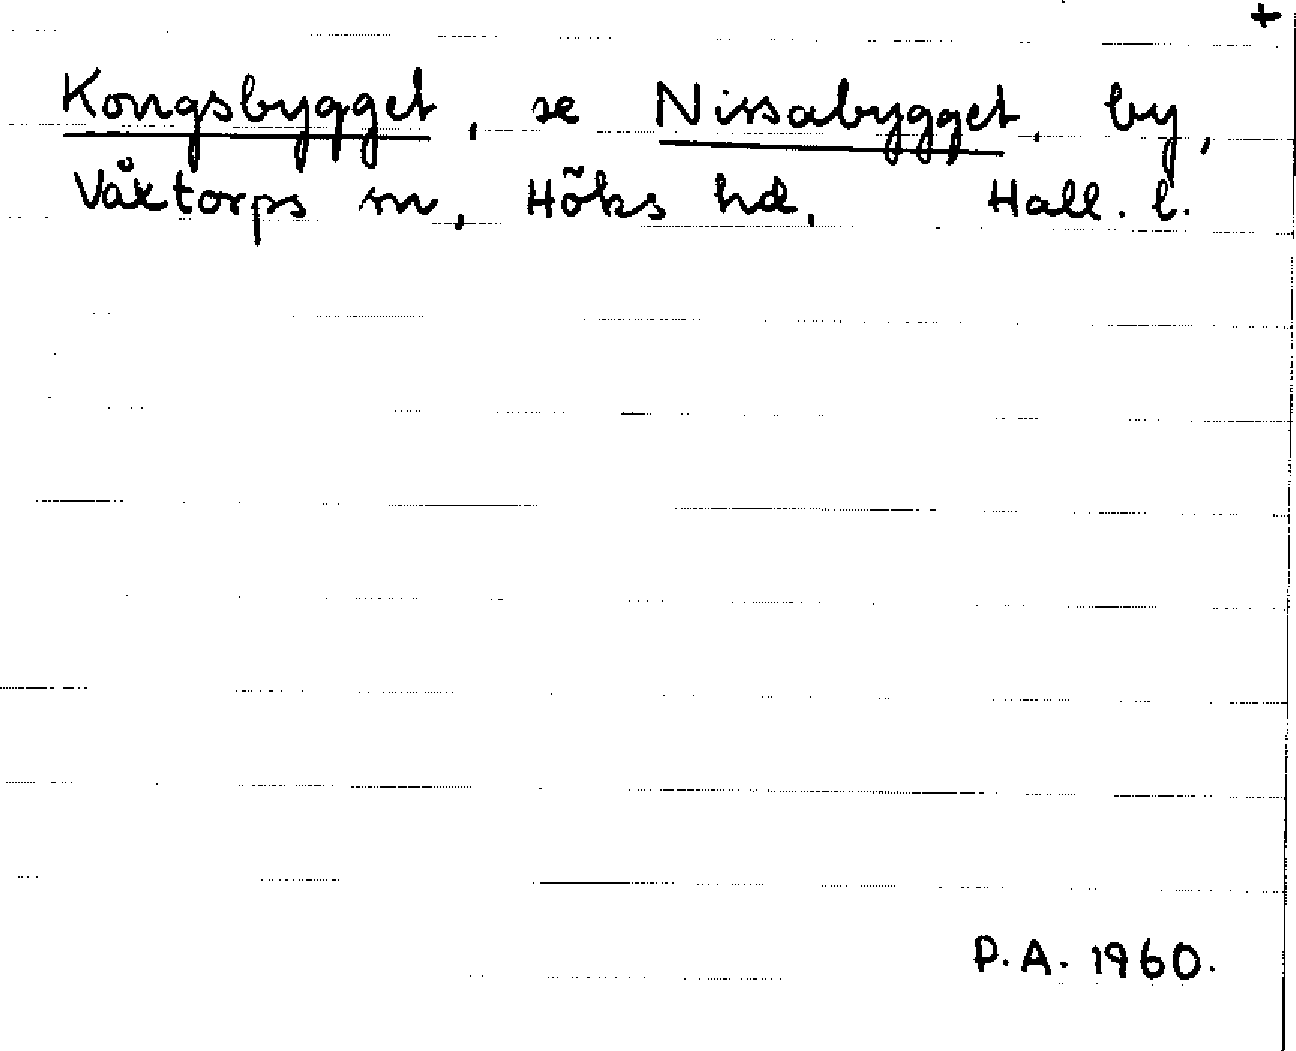 +
Kongsbygget, se Nissabygget, by,
Våxtorps sn, Höks hd, Hall. l.
P.A. 1960.